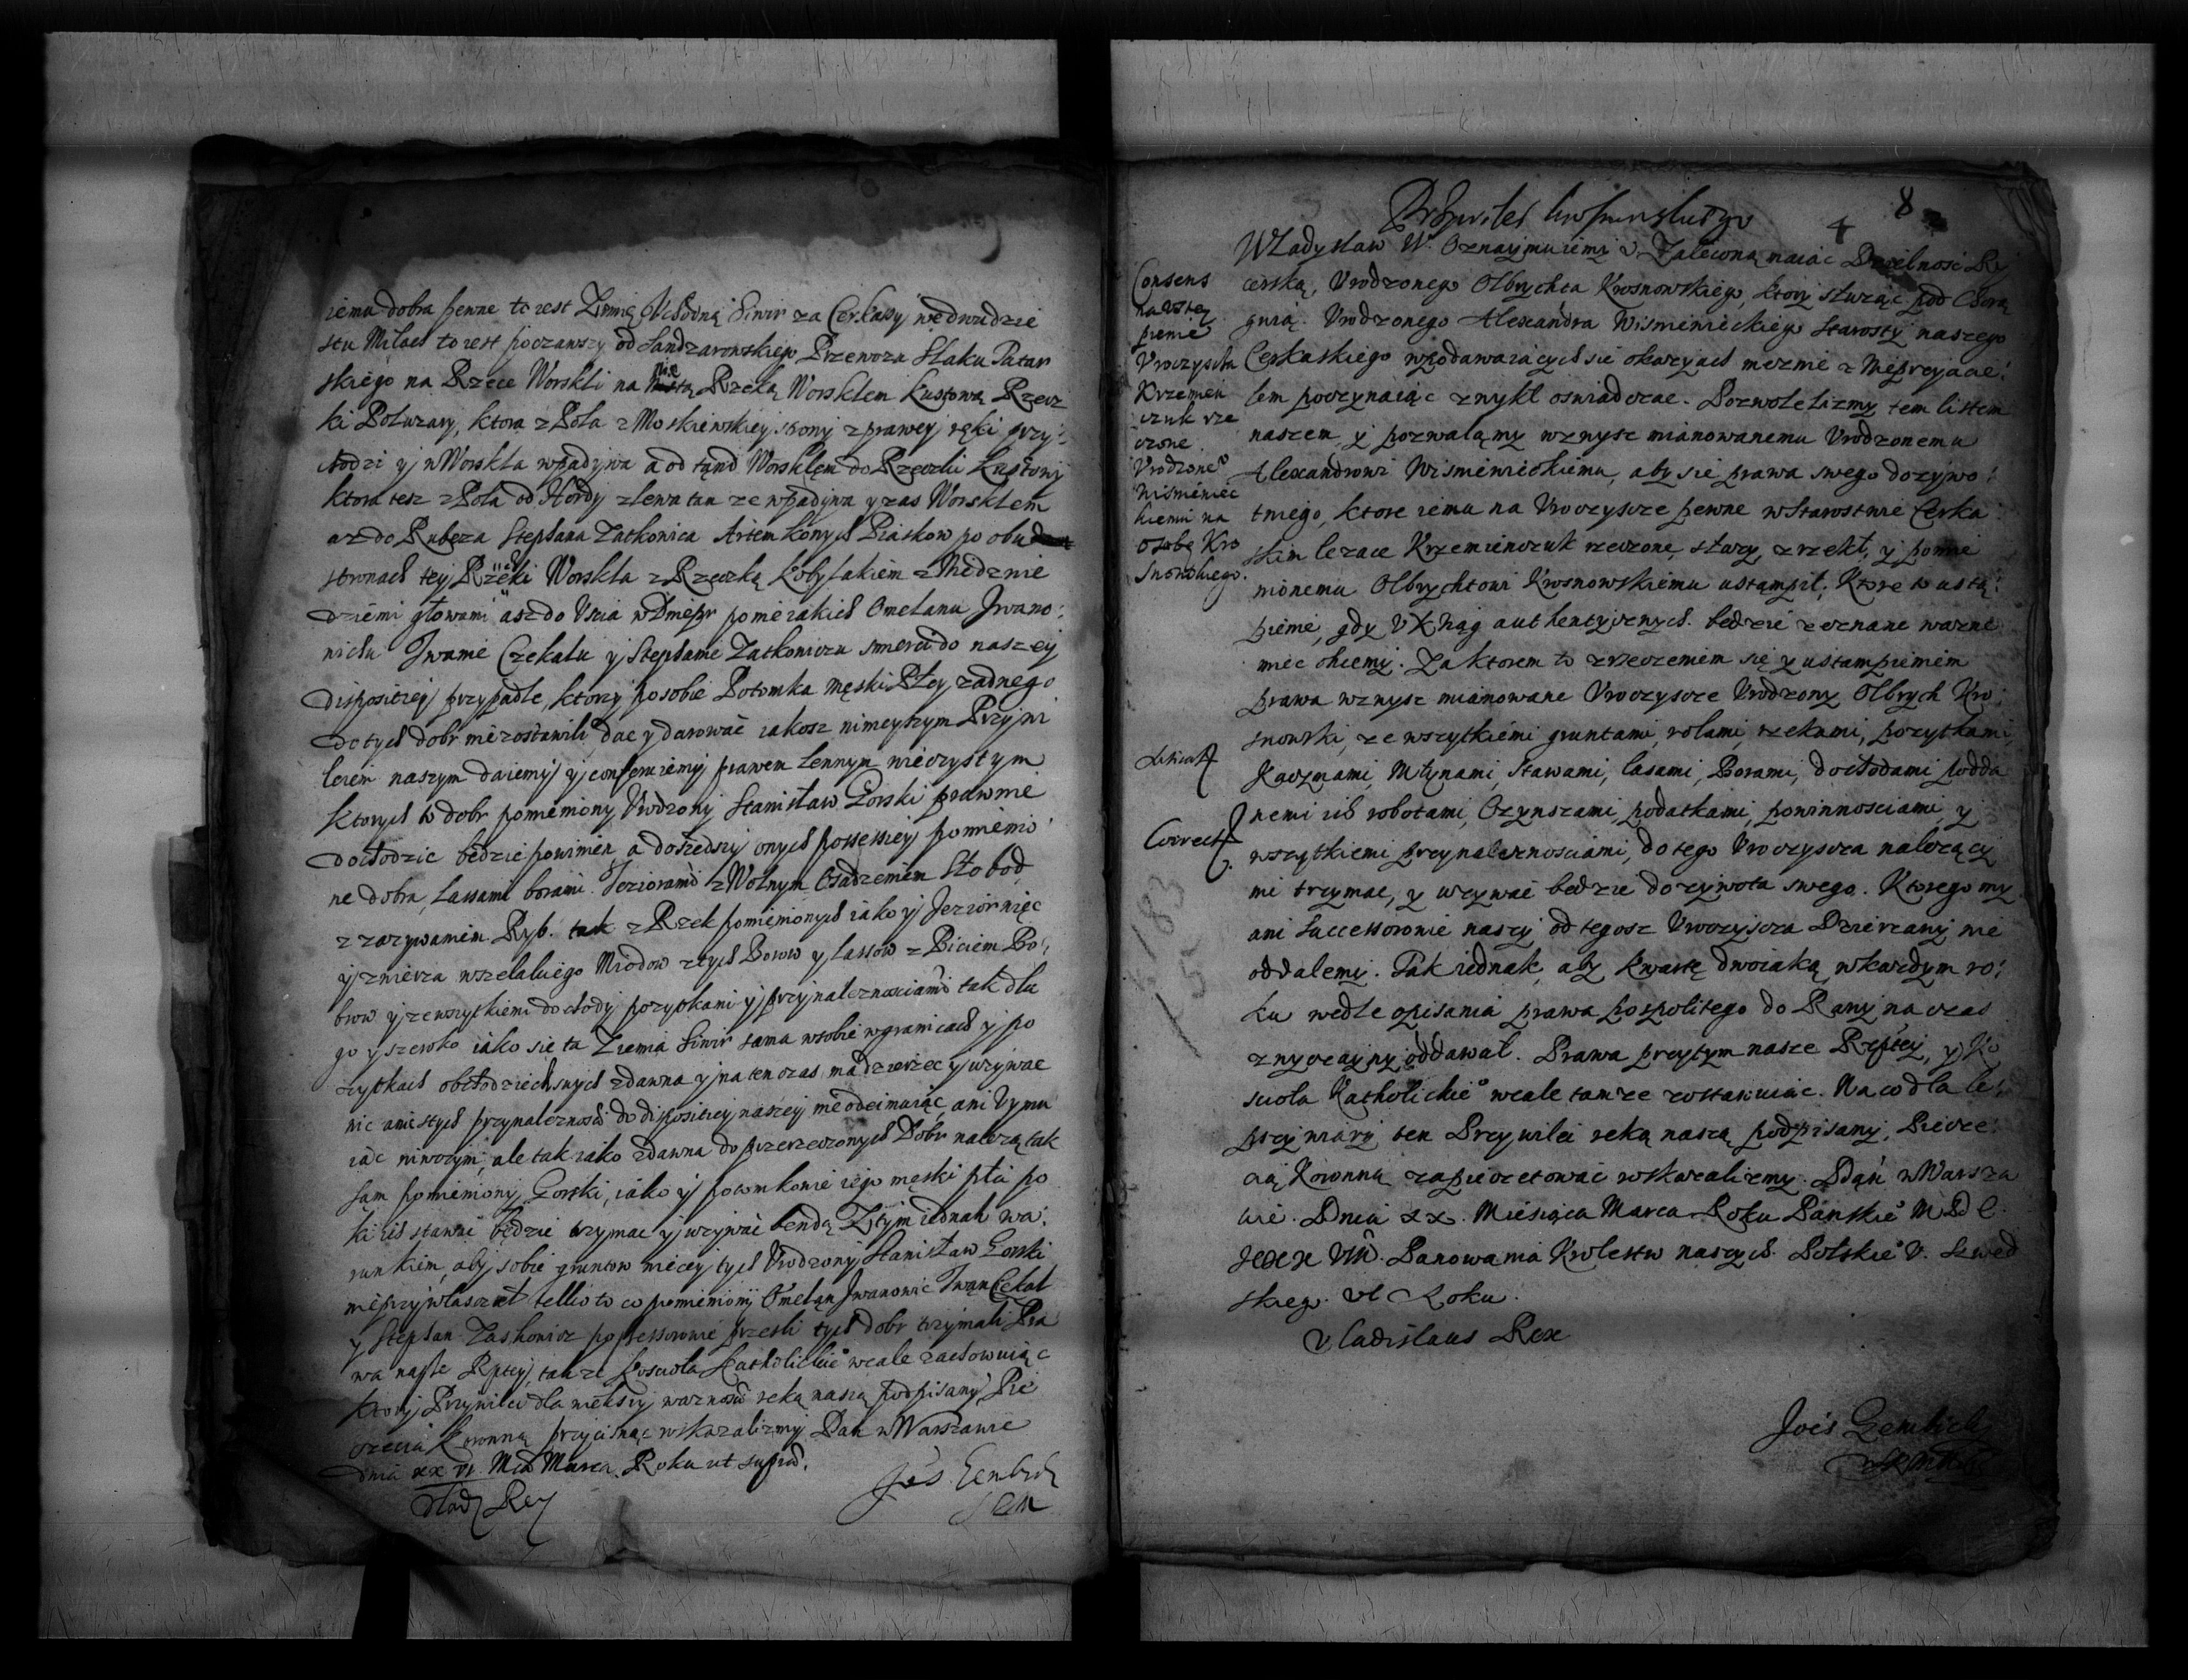 iemu dobra pewne to iest Ziemię Wschodną Siwir za Cerkasy we dwudzie
stu Milach to iest począwszy od Sandzarowskiego Przewozu Slaku Tatar
skiego na Rzece Worskli na nię Rzeką Worsklem Kustową Rzecz
ki Poluzary, ktora z Pola z Moskiewskiey strony z prawey ręki przy:
chodzi y w Worskla wpadywa a od tąnd Worsklęm do Rzeczki Kustowy
ktora tesz z Pola od Hordy z lewa tam ze wpadywa y zas Worsklem
az do Rubeza Stephana Zatkonica Artemkonych Piaskow po obu
stronach tey Rzeki Worskla z Rzeczką Kobylakiem z Niedzwie
dziemi głowami asz do Uscia w Dniepr po nieiakich Omelanu Iwano:
nichu Iwanie Czekalu y Stephanie Zatkoniczu smierci do naszey
dispositiey przypadłe, ktorzy po sobie Potomka męski Płcy zadnego
do tych dobr nie zostawili dac y darować iakosz nimeyszym Przywi
leiem naszym daiemy y conferuiemy prawem Lennym wieczystym
Ktorych to dobr pomieniony Urodzony Stanisław Gorski prawnie
dochodzic będzie powinien, a doszedszy onych possessiey pomienio
ne dobra, Lassami borami Ieziorami z Wolnym Osadzeniem Słobod
z zazywaniem Ryb. tak z Rzek pomienionych iako y Iezior więc
y zwierza wszelakiego Miodow z tych Borow y lassow z Biciem Bo:
brow y ze wszytkiemi dochody pozytkami y przynaleznosciami tak dłu
go y szeroko iako sie ta Ziemia Siwir sama w sobie w granicach y po
zytkach obchodziech swych zdawna y na ten czas ma dzierzec y uzywac
nic anis tych przynaleznosci do dispositiey naszey nie odeimuiąc, ani Uymu
iąc niwczym, ale tak iako zdawna do przerzeczonych Dobr nalezą tak
sąm pomieniony Gorski, iako y potomkowie iego męski płci po
ki ich stawac będzie trzymac y uzywac bendą Z tym iednak wa:
runkiem, aby sobie gruntow więcey tych Urodzony Stanisław Gorski
nie przywłaszczał tellio to co pomieniony Omelan Iwanowic Iwan Cekal
y Stephan Zaskonicz possessorowie przeszli tych dobr trzymali Pra
wa nasze Rptey, takze Kosciola Catholickiego wcale zachowuiąc
Ktory Przywiley dla większy waznosci ręką naszą podpisany Pie
częcią Koronną przycisnąc rozkazalismy Dan w Warszawie
dnia xx vi. Mca Marca Roku ut supra.
Vlad Rex
Jo͞es Gembick
Przywilei Krosnowskiemu
4
8
Consens
na ustę
pienie
Uroczyska
Krzemien
czuk rze
czone
Urodzone͞o
Wisniewiec
kiemu na
osobę Kro
snowskiego.
Wladyslaw IV. Oznaymuiemy &. Zaleconą maiąc Dzielnosć Ry
cerską, Urodzonego Olbrychta Krosnowskiego, ktory sluząc pod Chorą
gwią. Urodzonego Alexandra Wisniewieckiego Starosty naszego
Cerkaskiego w podawaiących się okazyach męznie z Nieprzyiacie:
lem poczynaiąc zwykł oswiadczac. Pozwolilismy tem listem
naszem, y pozwalamy wznysz mianowanemu Urodzonemu
Alexandrowi Wisniewieckiemu, aby sie prawa swego dozywo:
tniego, ktore iemu na Uroczyscze pewne w Starostwie Cerka
skim lezace Krzemienczuk rzeczone, sluzy, zrzekł, y pomie
nionemu Olbrychtowi Krosnowskiemu ustąmpił, Ktore to ustą:
pienie, gdy u Xiąg authentycznych będzie zeznane wazne
miec chcemy. Za ktorem to zrzeczeniem się y ustampieniem
prawa wznysz mianowane Uroczyscze Urodzony Olbrych Kro:
snowski, ze wszytkiemi gruntami, rolami, rzekami, pozytkami,
Kaczmami, Młynami, Stawami, lasami, Borami, dochodami podda
nemi ich robotami, Czynszami, podatkami, powinnosciami y
Correct
wszytkiemi przynaleznosciami, do tego Uroczyscza nalezący
mi trzymac, y uzywać będzie do zywota swego. Ktorego my
ani Successorowie naszy od tegosz Uroczyscza Dzierzawy nie
oddalemy. Tak iednak, aby kwartę dwoiaką, w kazdym ro:
ku wedle opisania prawa pospolitego do Rawy na czas
zwyczayny oddawał. Prawa przytym nasze Rzptey, y Ko
scioła Katholickie͞o wcale tamze zostawuiąc. Na co dla le:
pszy wiary ten Przywilei ręką naszą podpisany, Piecze:
cią Koronną zapieczetować roskazalismy. Dąn w Warsza
wie. Dnia xx. Miesiąca Marca Roku Panskie͞o MDC
XXXVIII. Panowania Krolestw naszych Polskie͞o V. Szwed
skiego. VI Roku.
Vladislaus Rex
Jo͞es Gembick